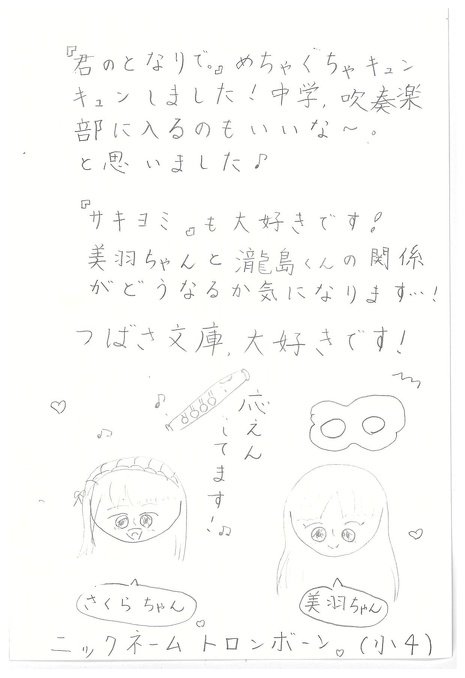 『君のとなりで。』めちゃくちゃキュン
キュンしました！中学，吹奏楽
部に入るのもいいな〜。
と思いました♪
『サキヨミ』も大好きです！
美羽ちゃんと瀧島くんの関係
がどうなるか気になります…！
つばさ文庫，大好きです！
応えん
してます！♫
さくらちゃん
美羽ちゃん
ニックネーム トロンボーン♡（小4）